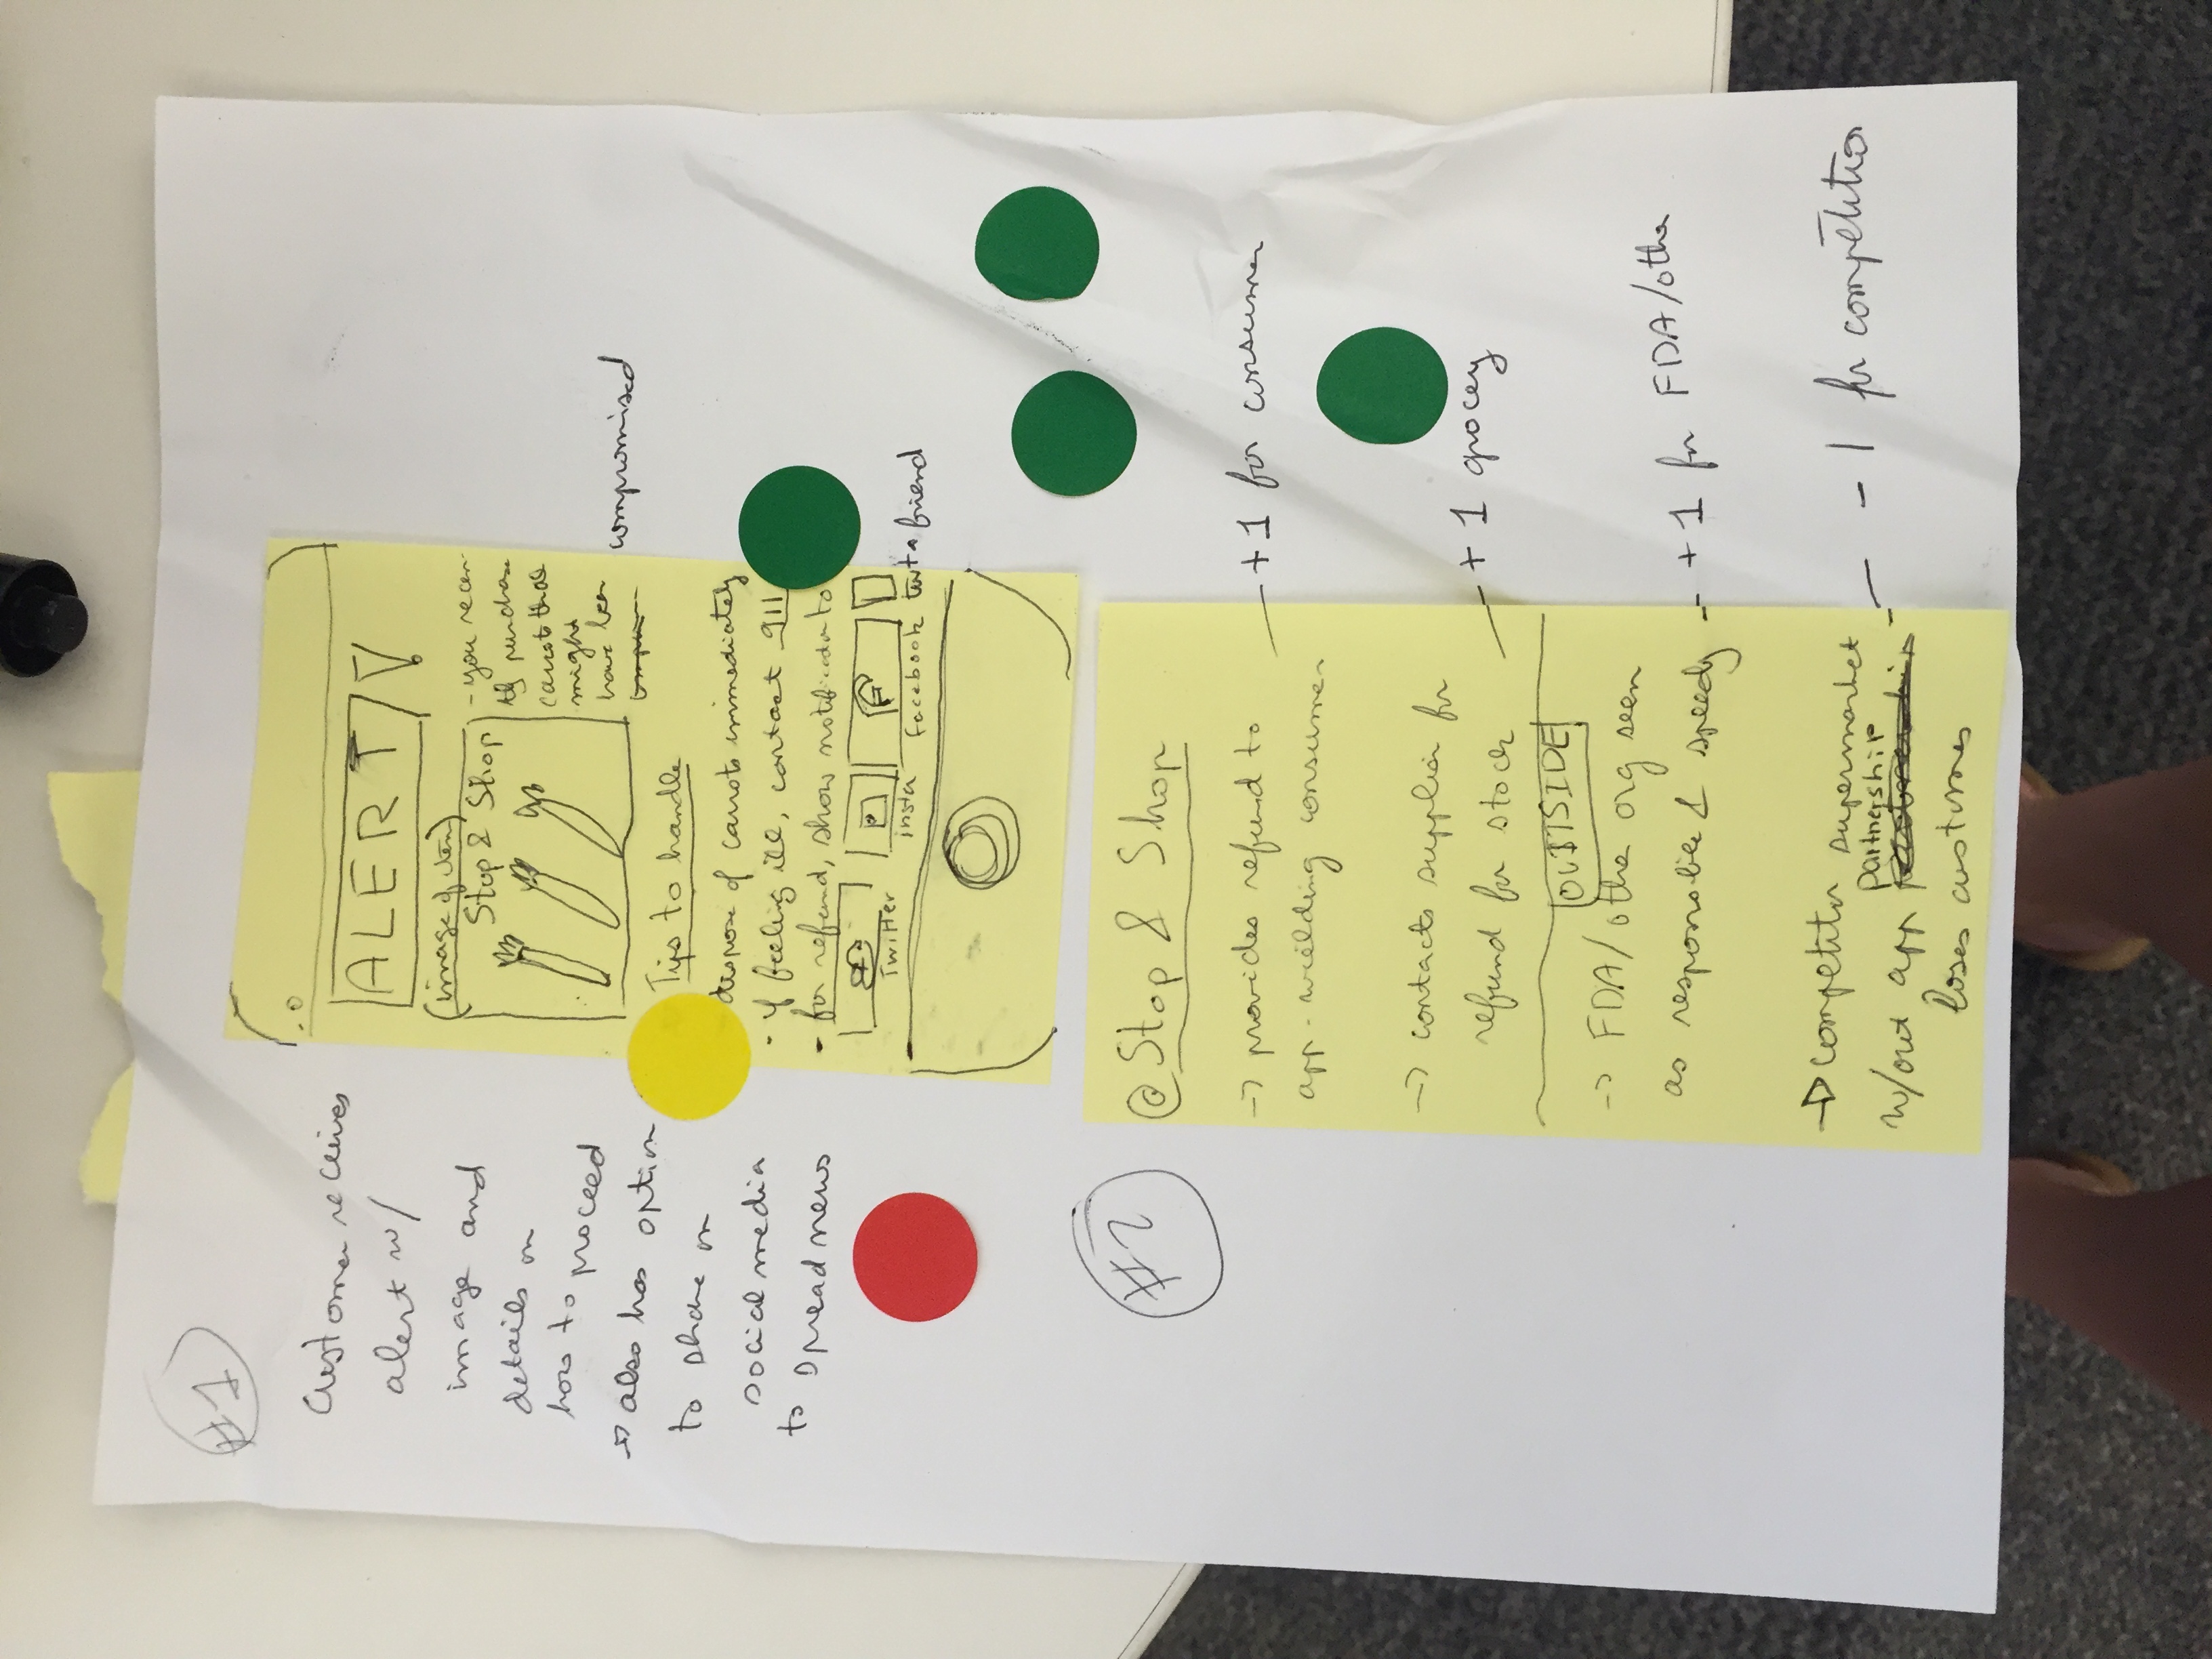 #1
Customer receives
alert w/
image and
details on
how to proceed
→ also has option
to share on
social media
to spread news
ALERT !
(image of item)
Stop & Shop
- you recen-
tly purchase
carrots that
might
have been
compromised
Tips to handle
dispose of carrots immediately
- if feeling ill, contact 911
- for refund, show notification to
Twitter
insta
facebook
text a friend
#2
@ Stop & Shop
→ provides refund to
app-wielding consumer
+1 for consumer
→ contacts supplier for
refund for stock
+1 grocey
OUTSIDE
→ FDA/other org seen
as responsible & speedy
+1 for FDA/other
→ competitor supermarket
w/out app partnership
loses customers
-1 for competition